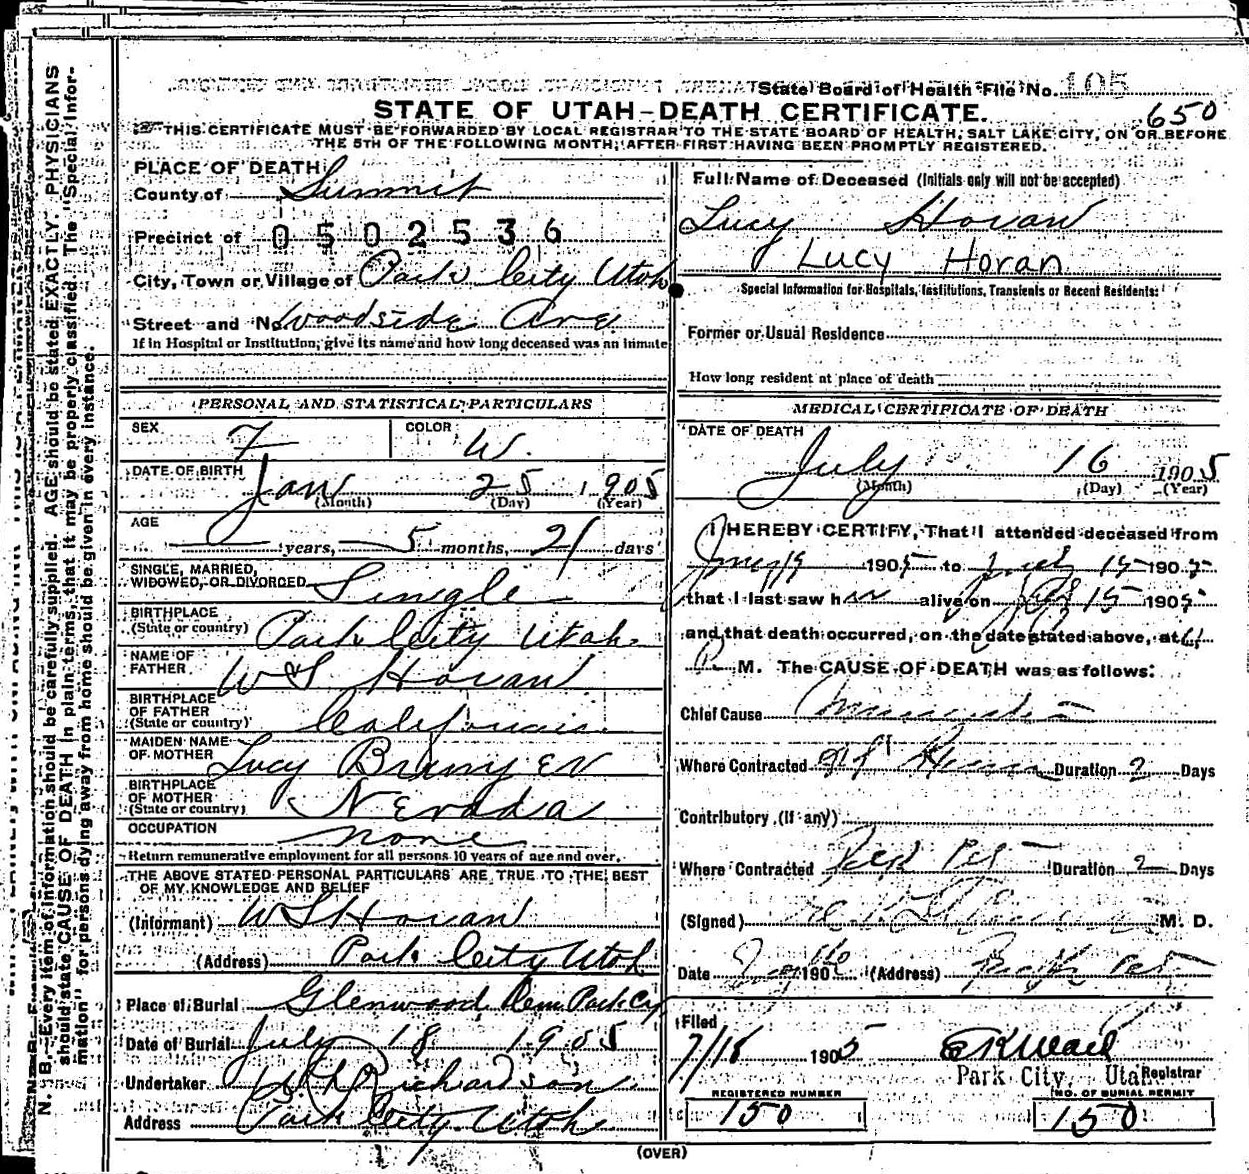 State Board of Health File No. 105
STATE OF UTAH-DEATH CERTIFICATE.
650
THIS CERTIFICATE MUST BE FORWARDED BY LOCAL REGISTRAR TO THE STATE BOARD OF HEALTH, SALT LAKE CITY, ON OR BEFORE
THE 5TH OF THE FOLLOWING MONTH, AFTER FIRST HAVING BEEN PROMPTLY REGISTERED.
PLACE OF DEATH
County of Summit
Precinct of 0502536
City, Town or Village of Park City Utah
Street and No. Woodside Ave
If in Hospital or Institution, give its name and how long deceased was an inmate
Full Name of Deceased (Initials only will not be accepted)
Lucy Horan
Lucy Horan
Special Information for Hospitals, Institutions, Transients or Recent Residents:
Former or Usual Residence
How long resident at place of death
PERSONAL AND STATISTICAL PARTICULARS
SEX F COLOR W.
DATE OF BIRTH
Jan 25 1905
(Month) (Day) (Year)
AGE
years, 5 months, 21 days
SINGLE, MARRIED,
WIDOWED, OR DIVORCED Single
BIRTHPLACE
(State or country) Park City Utah
NAME OF
FATHER W S Horan
BIRTHPLACE
OF FATHER
(State or country) California
MAIDEN NAME
OF MOTHER Lucy
BIRTHPLACE
OF MOTHER
(State or country) Nevada
OCCUPATION none
Return remunerative employment for all persons 10 years of age and over.
THE ABOVE STATED PERSONAL PARTICULARS ARE TRUE TO THE BEST
OF MY KNOWLEDGE AND BELIEF
(Informant) W S Horan
(Address) Park City Utah
Place of Burial Glenwood Cem Park Cy
Date of Burial July 18 1905
Undertaker Richardson
Address Park City Utah
MEDICAL CERTIFICATE OF DEATH
DATE OF DEATH
July 16 1905
(Month) (Day) (Year)
I HEREBY CERTIFY, That I attended deceased from
1905 to July 15 1905
that I last saw her alive on July 15 1905
and that death occurred, on the date stated above, at
P. M. The CAUSE OF DEATH was as follows:
Chief Cause
Where Contracted Duration 2 Days
Contributory (If any)
Where Contracted Duration 2 Days
(Signed) M. D.
Date 190 (Address)
Filed
7/18 1905
Park City, Utah Registrar
REGISTERED NUMBER
150
NO. OF BURIAL PERMIT
150
(OVER)
N. B.—Every item of information should be carefully supplied. AGE should be stated EXACTLY. PHYSICIANS
should state CAUSE OF DEATH in plain terms, that it may be properly classified. The "Special Infor-
mation" for persons dying away from home should be given in every instance.